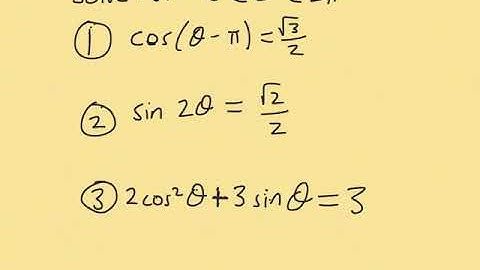 ① cos(θ-π) = √3/2
② sin 2θ = √2/2
③ 2cos²θ + 3 sin θ = 3